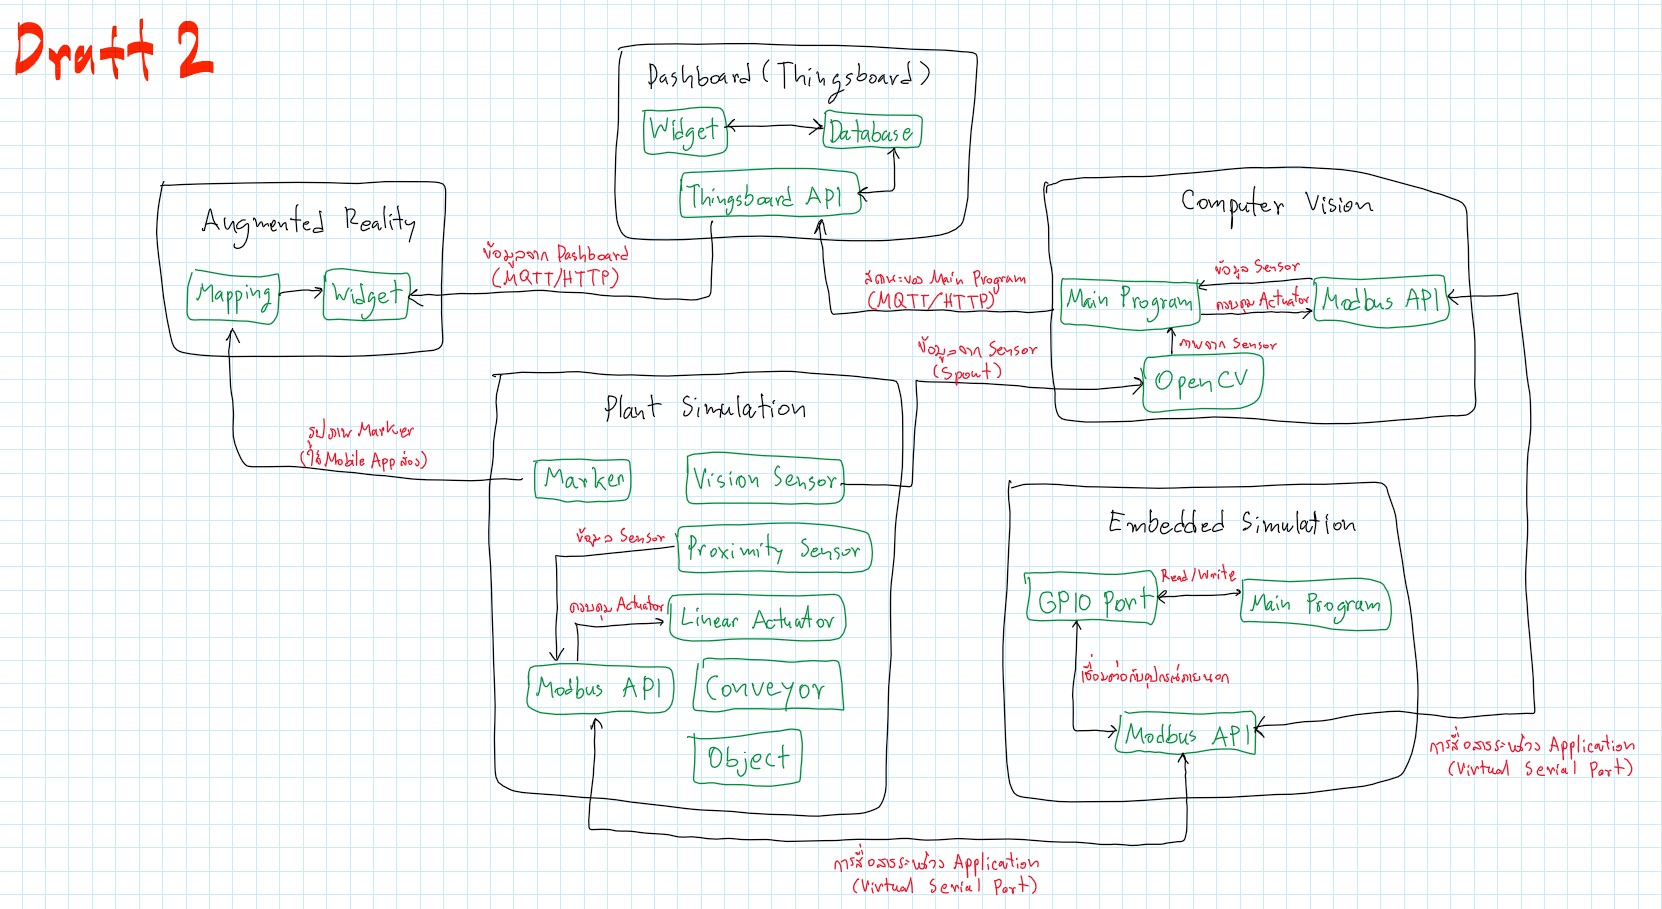 Draft 2
Dashboard (Thingsboard)
Widget
Database
Thingsboard API
Augmented Reality
Mapping
Widget
ข้อมูลจาก Dashboard
(MQTT/HTTP)
สถานะของ Main Program
(MQTT/HTTP)
Computer Vision
Main Program
ข้อมูล Sensor
ควบคุม Actuator
Modbus API
ภาพจาก Sensor
OpenCV
ข้อมูลจาก Sensor
(Spout)
รูปภาพ Marker
(ใช้ Mobile App ส่อง)
Plant Simulation
Marker
Vision Sensor
ข้อมูล Sensor
Proximity Sensor
ควบคุม Actuator
Linear Actuator
Modbus API
Conveyor
Object
Embedded Simulation
GPIO Port
Read/Write
Main Program
เชื่อมต่อกับอุปกรณ์ภายนอก
Modbus API
การสื่อสารระหว่าง Application
(Virtual Serial Port)
การสื่อสารระหว่าง Application
(Virtual Serial Port)